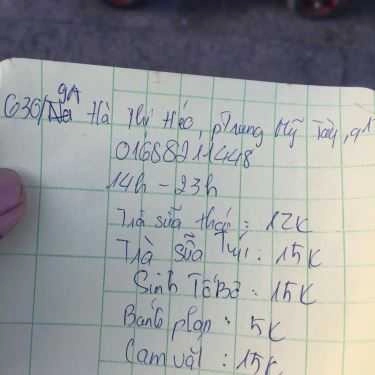 9A
636/ Hà Thị Kéo, p Trung Mỹ Tây, q1
01688211448
14h - 23h
Trà sữa thác : 12K
Trà sữa Túi : 15K
Sinh Tố Bơ : 15K
Bánh plan : 5K
Cam vắt : 15K